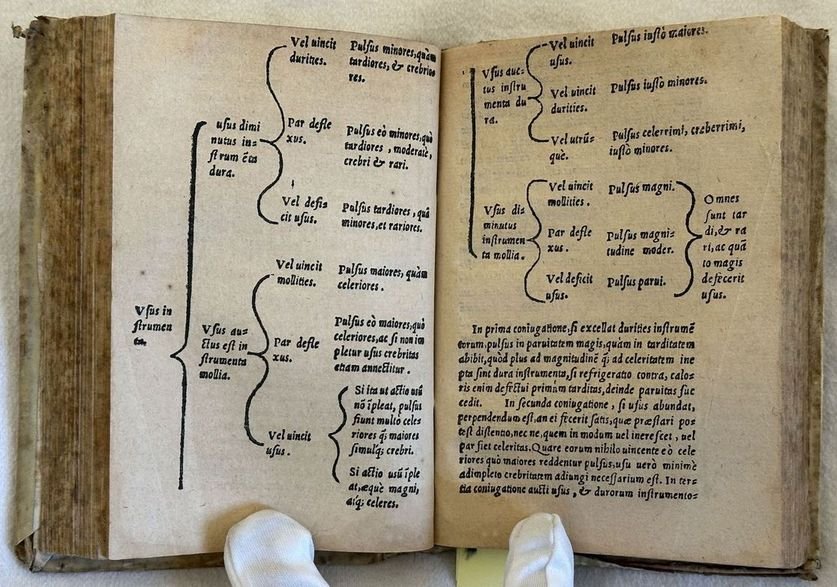 Vel uincit
durities.
Pulsus minores, quàm
tardiores, & crebrio
res.
usus dimi
nutus in=
strum ēta
dura.
Par defle
xus.
Pulsus eò minores, quò
tardiores, moderatè,
crebri & rari.
Vel defi=
cit usus.
Pulsus tardiores, quā
minores, et rariores.
Vsus in
strumen
ta.
Vel uincit
mollities.
Pulsus maiores, quàm
celeriores.
Vsus au=
ctus est in
strumenta
mollia.
Par defle
xus.
Pulsus eò maiores, quò
celeriores, ac si non im
pletur usus crebritas
etiam annectitur.
Vel uincit
usus.
Si ita ut actio usū
nō īpleat, pulsus
fiunt multò cele=
riores q; maiores
simulq; crebri.
Si actio usū īple
at, æquè magni,
atq; celeres.
Vsus auc=
tus instru
menta du
ra.
Vel uincit
usus.
Pulsus iusto maiores.
Vel uincit
durities.
Pulsus iusto minores.
Vel utrū=
què.
Pulsus celerrimi, creberrimi,
iusto minores.
Vsus di=
minutus
instrumen
ta mollia.
Vel uincit
mollities.
Pulsus magni.
Par defle
xus.
Pulsus magni=
tudine moder.
Vel deficit
usus.
Pulsus parui.
Omnes
sunt tar
di, & ra
ri, ac quā
to magis
defecerit
usus.
In prima coniugatione, si excellat durities instrumē
torum, pulsus in paruitatem magis, quàm in tarditatem
abibit, quòd plus ad magnitudinē q̄; ad celeritatem ine
pta sint dura instrumenta, si refrigeratio contra, calo=
ris enim defectui primùm tarditas, deinde paruitas suc
cedit. In secunda coniugatione, si usus abundat,
perpendendum est, an ei fecerit satis, quæ præstari po=
test distentio, nec ne, quem in modum uel increscet, uel
par fiet celeritas. Quare eorum nihilo uincente eò cele
riores quò maiores reddentur pulsus, usu uerò minimè
adimpleto crebritatem adiungi necessarium est. In ter=
tia coniugatione aucti usus, & durorum instrumento=